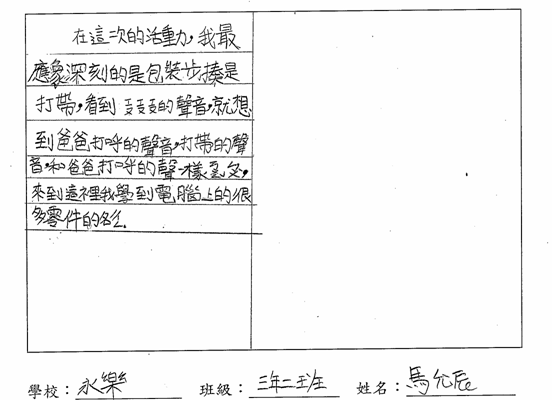 在這次的活重力,我最
應象深刻的是包裝步揍是
打帶,看到ㄡㄡㄡ的聲音,就想
到爸爸打呼的聲音,打帶的聲
音,和爸爸打呼的聲一樣
來到這裡我學到電腦上的很
多零件的名
學校:永樂 班級:三年二班 姓名:馬允辰